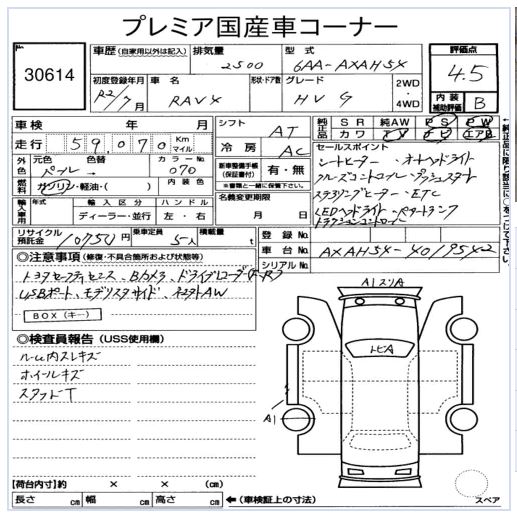 プレミア国産車コーナー
30614
車歴 (自家用以外は記入) 排気量 型式
2500 6AA-AXAH54
評価点
4.5
初度登録年月 車名 形状・ドア数 グレード
R2/7月 RAV4 HV G
2WD
・4WD
内装
補助評価 B
車検 年 月
走行 59,070 Km
マイル
シフト AT
冷房 AC
純正品 SR 純AW PS PW
カワ TV ナビ エアB
外色 元色 色替 カラーNo.
パール 070
燃料 ガソリン・軽油・( ) 内装色
新車整備手帳
(保証書付) 有・無
※書類と一緒に保管下さい。
名義変更期限
月 日
セールスポイント
シートヒーター ・オートハイライト
クルーズコントロール・プッシュスタート
ステアリングヒーター・ETC
LEDヘッドライト・パワートランク
トラクションコントロール
↑純正品に限り該当に○をつけて下さい。
輸入車用 年式 輸入区分 ハンドル
ディーラー・並行 左・右
リサイクル
預託金 10750円
乗車定員 5人
積載量 t
登録No.
車台No. AXAH54-4019542
シリアルNo.
◎注意事項 (修復・不具合箇所および状態等)
トヨタセーフティセンス、Bカメラ、ドライブレコーダー(F・R)
USBポート、モデリスタサイド、
BOX(キー)
◎検査員報告 (USS使用欄)
ルーム内スレキズ
ホイールキズ
スタッドT
A1スリA
トビA
A1
【荷台内寸】約 × × (cm)
長さ cm 幅 cm 高さ cm ←(車検証上の寸法)
スペア